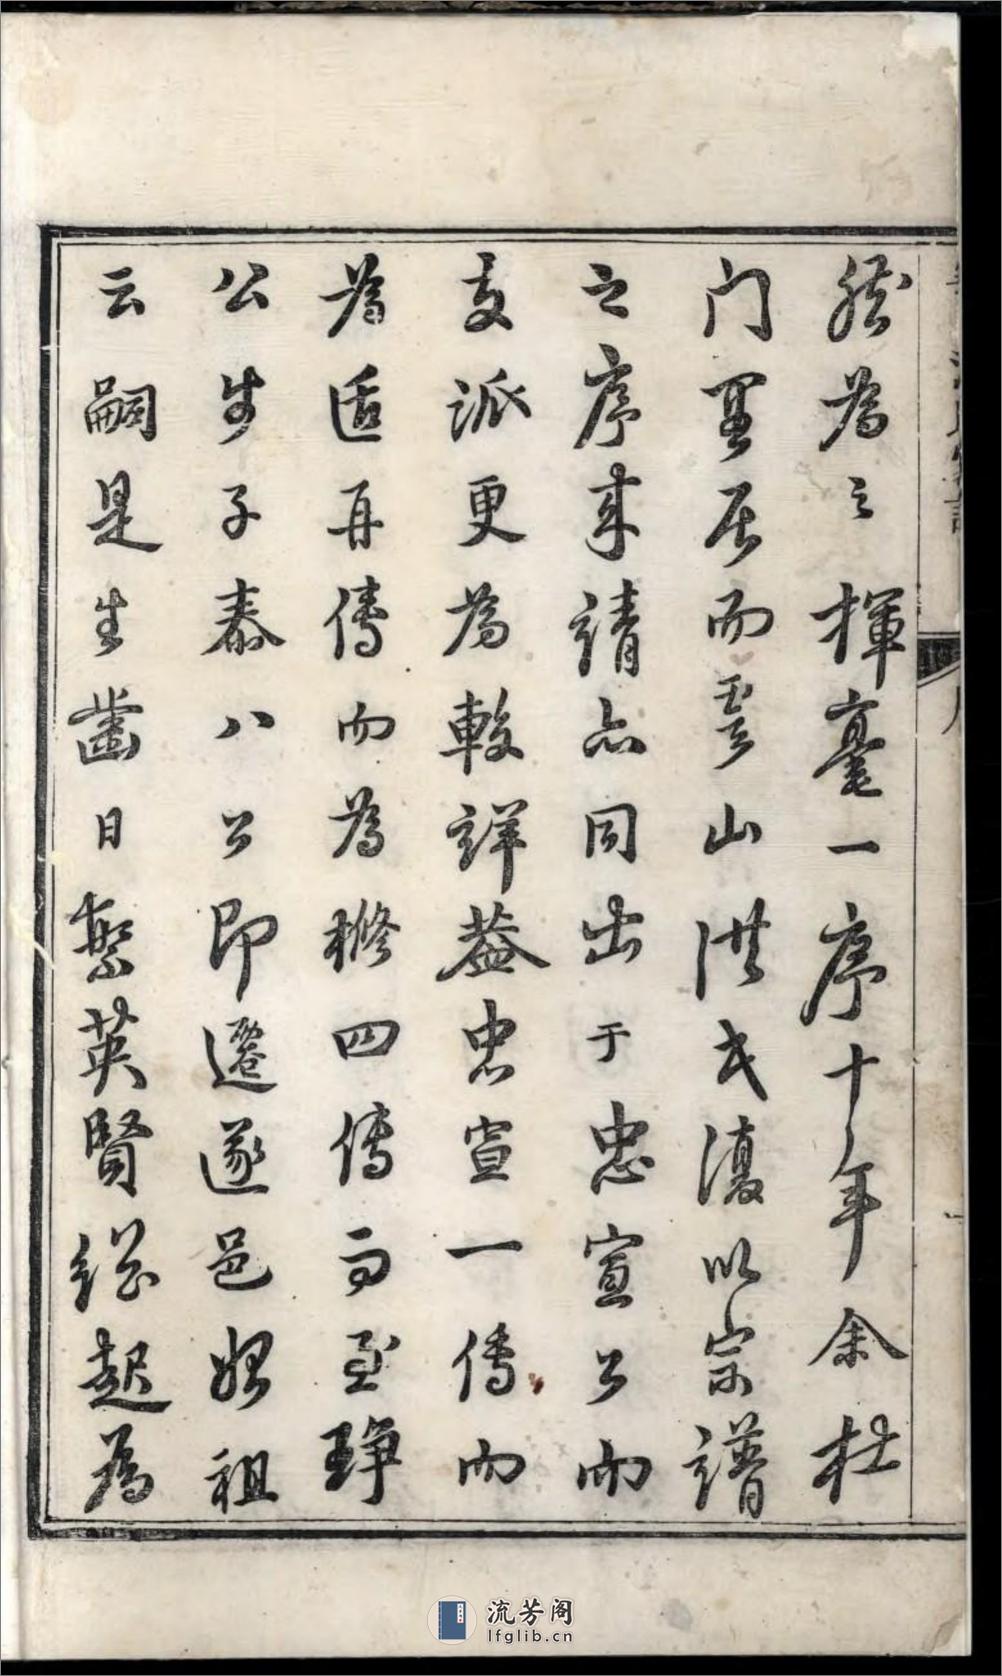 然為之揮毫一序十年余杜
门里居而雲山洪氏復以宗譜
之序来請亦同出于忠宣公而
支派更為較詳蓋忠宣一傳而
為适再傳而為樤四傳而至琤
公步子泰八公即遷遂邑始祖
云嗣是生齒日繁英賢繼起為
流芳阁
lfglib.cn